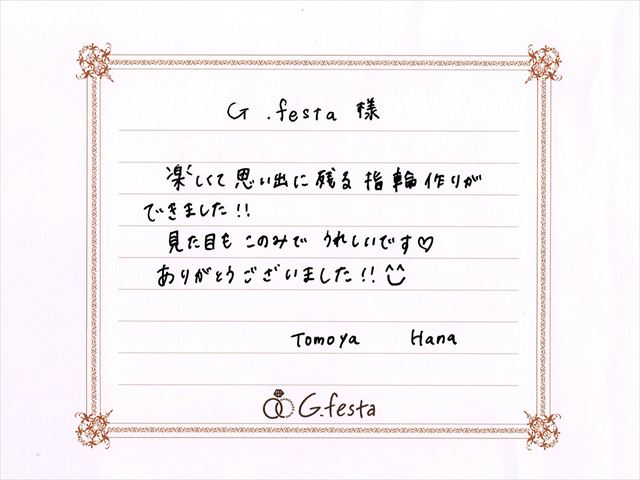 G.festa 様
楽しくて思い出に残る指輪作りが
できました!!
見た目もこのみでうれしいです♡
ありがとうございました!! ^^
Tomoya Hana
G.festa